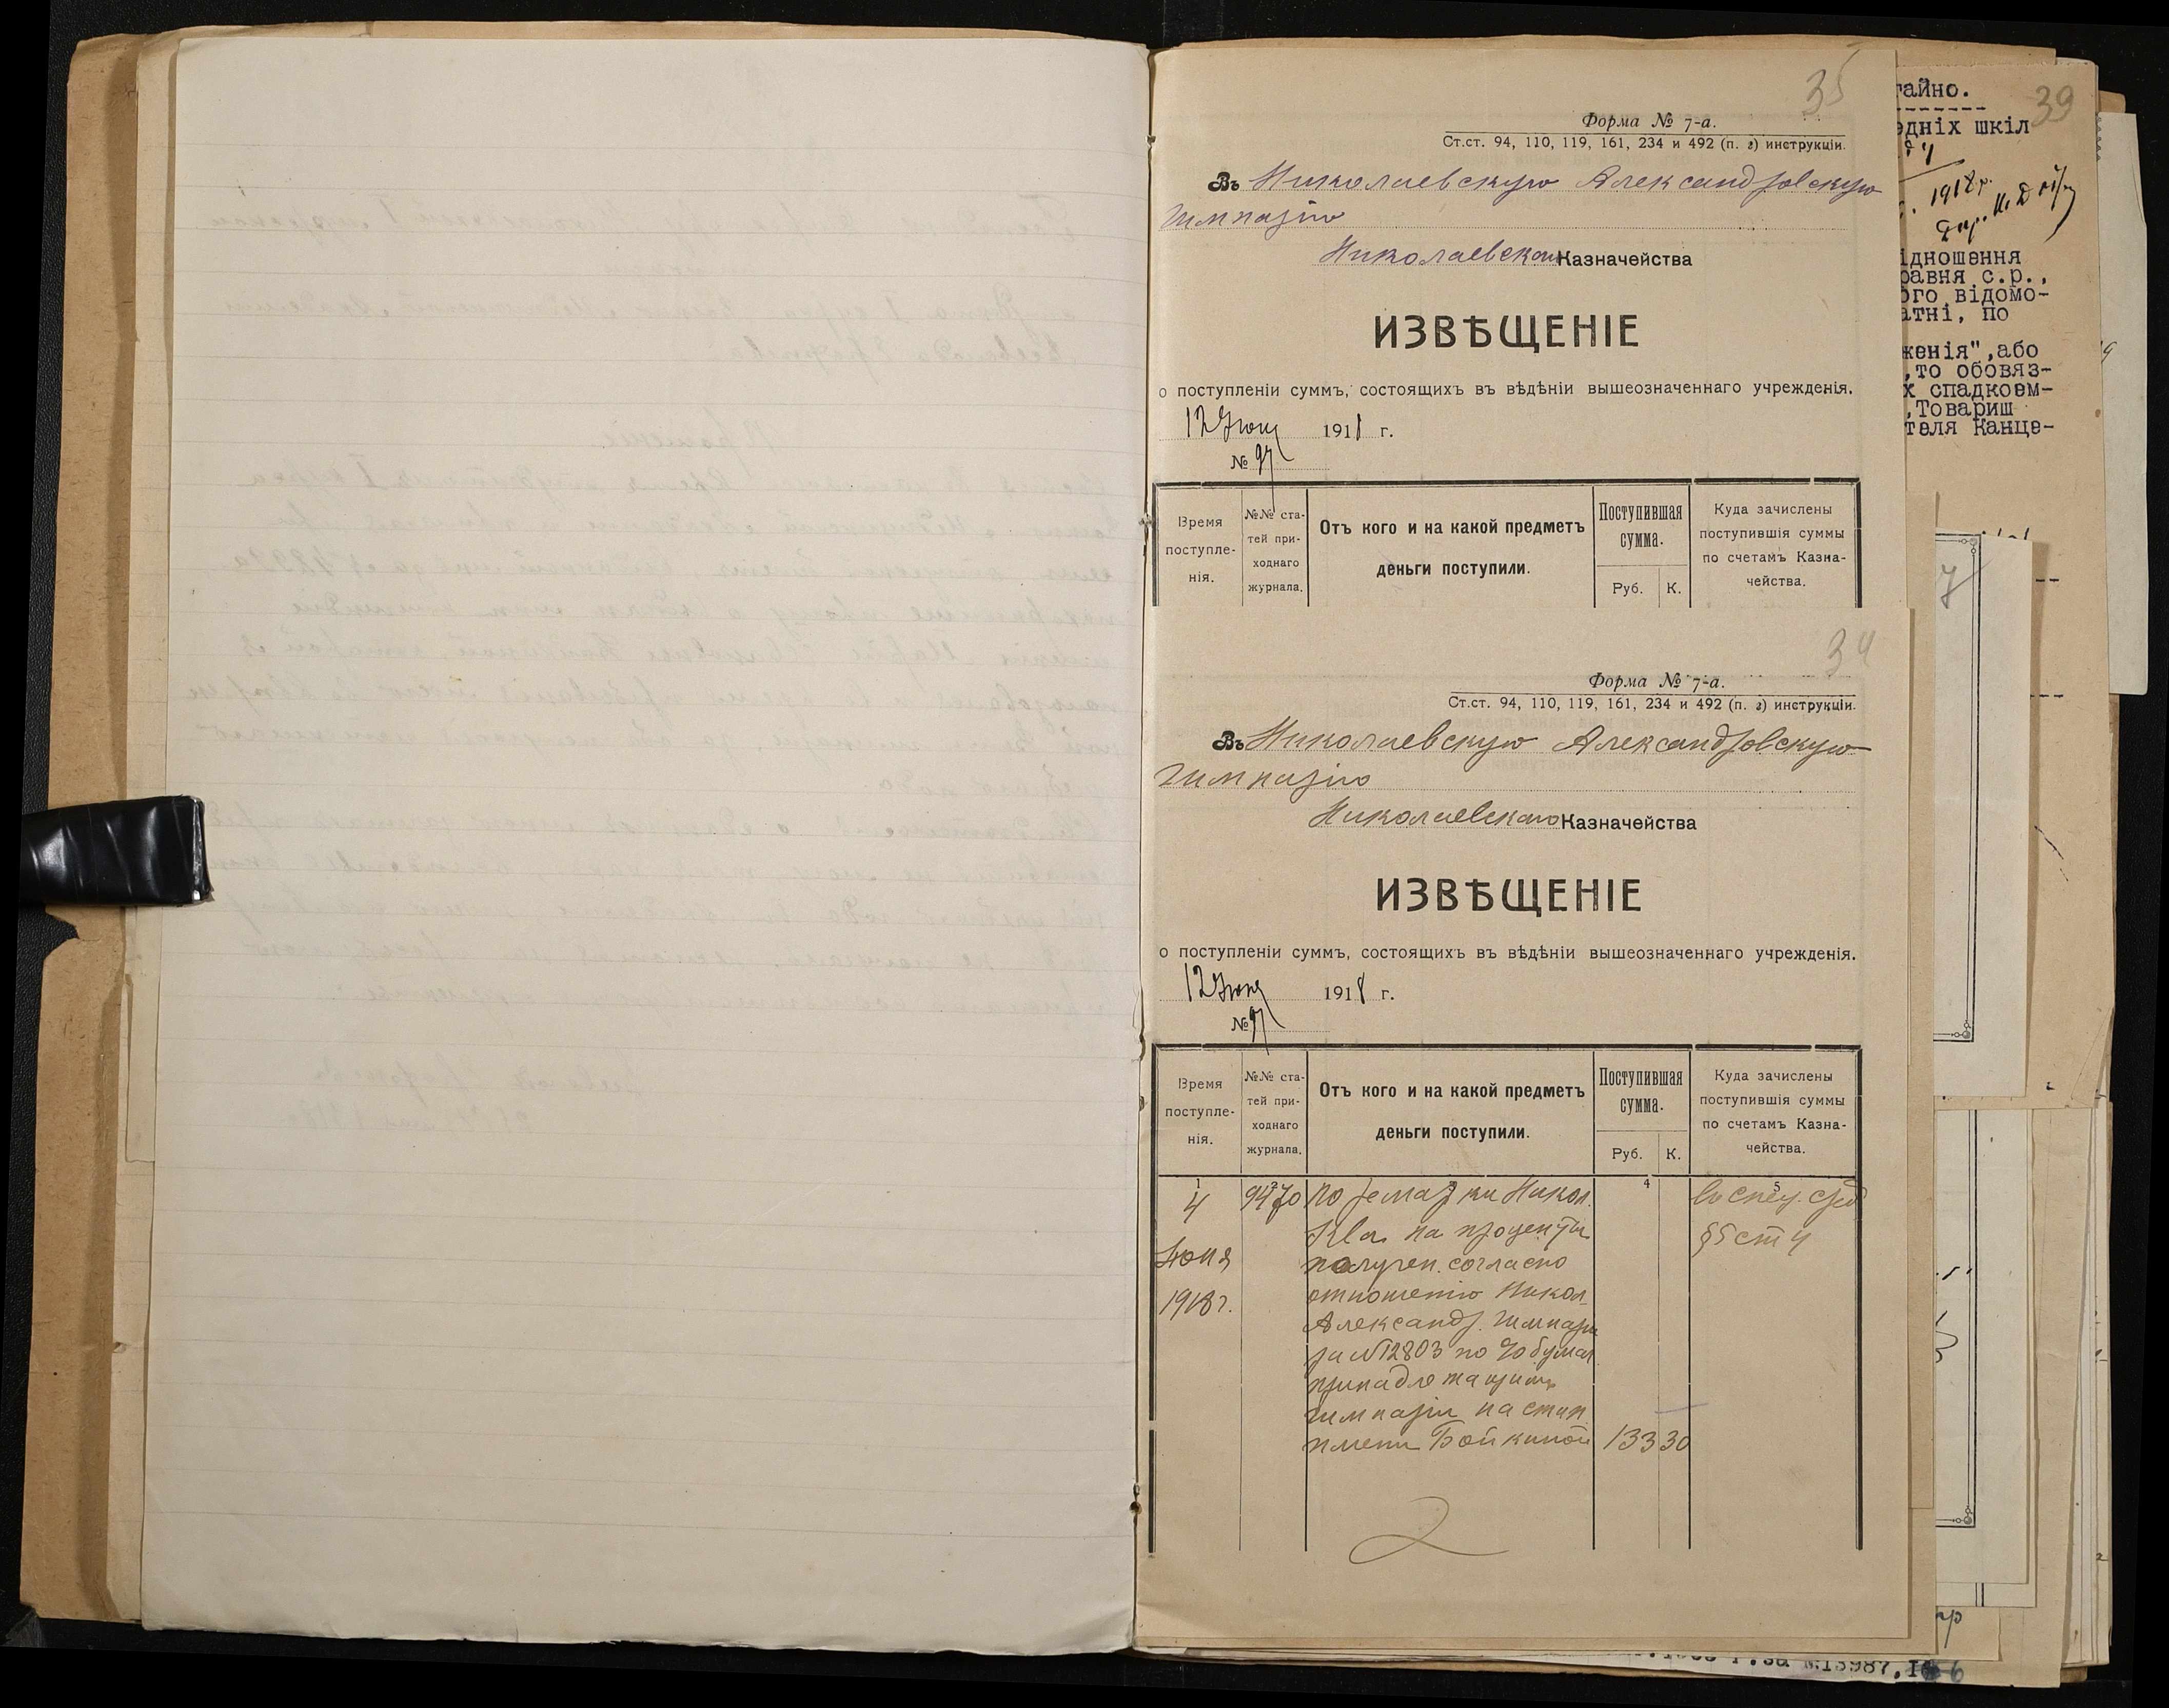 35
Форма № 7-а.
Ст.ст. 94, 110, 119, 161, 234 и 492 (п. г) инструкціи.
Въ Николаевскую Александровскую
гимназію
Николаевскаго Казначейства
ИЗВѢЩЕНІЕ
о поступленіи суммъ, состоящихъ въ вѣдѣніи вышеозначеннаго учрежденія.
12 Іюня 1918 г.
№ 97
Время поступле-нія.
№№ ста-тей при-ходнаго журнала.
Отъ кого и на какой предметъ деньги поступили.
Поступившая сумма.
Руб. К.
Куда зачислены поступившія суммы по счетамъ Казна-чейства.
34
Форма № 7-а.
Ст.ст. 94, 110, 119, 161, 234 и 492 (п. г) инструкціи.
Въ Николаевскую Александровскую
гимназію
Николаевскаго Казначейства
ИЗВѢЩЕНІЕ
о поступленіи суммъ, состоящихъ въ вѣдѣніи вышеозначеннаго учрежденія.
12 Іюня 1918 г.
№ 97
Время поступле-нія.
№№ ста-тей при-ходнаго журнала.
Отъ кого и на какой предметъ деньги поступили.
Поступившая сумма.
Руб. К.
Куда зачислены поступившія суммы по счетамъ Казна-чейства.
1 2 3 4 5
4
Іюня
1918 г.
9470
по Никол.
Ква на проценты
получен. согласно
отношенію Никол.
Александр. гимназіи
за № 12803 по %% бумаг.
принадлежащимъ
гимназіи на стип.
имени Бойкиной 133 30
въ спец. сред
§ 5 ст 4
39
тайно.
едніх шкіл
1918 р.
ідношення
равня с.р.,
ого відомо-
атні, по
женія",або
,то обовяз-
х спадкоем-
,Товариш
теля Канце-
7
г.за №13987,